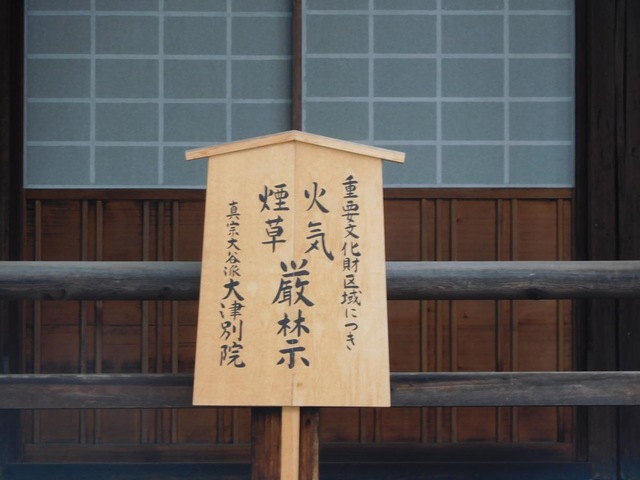 重要文化財区域につき
火気
煙草
厳禁
真宗大谷派大津別院